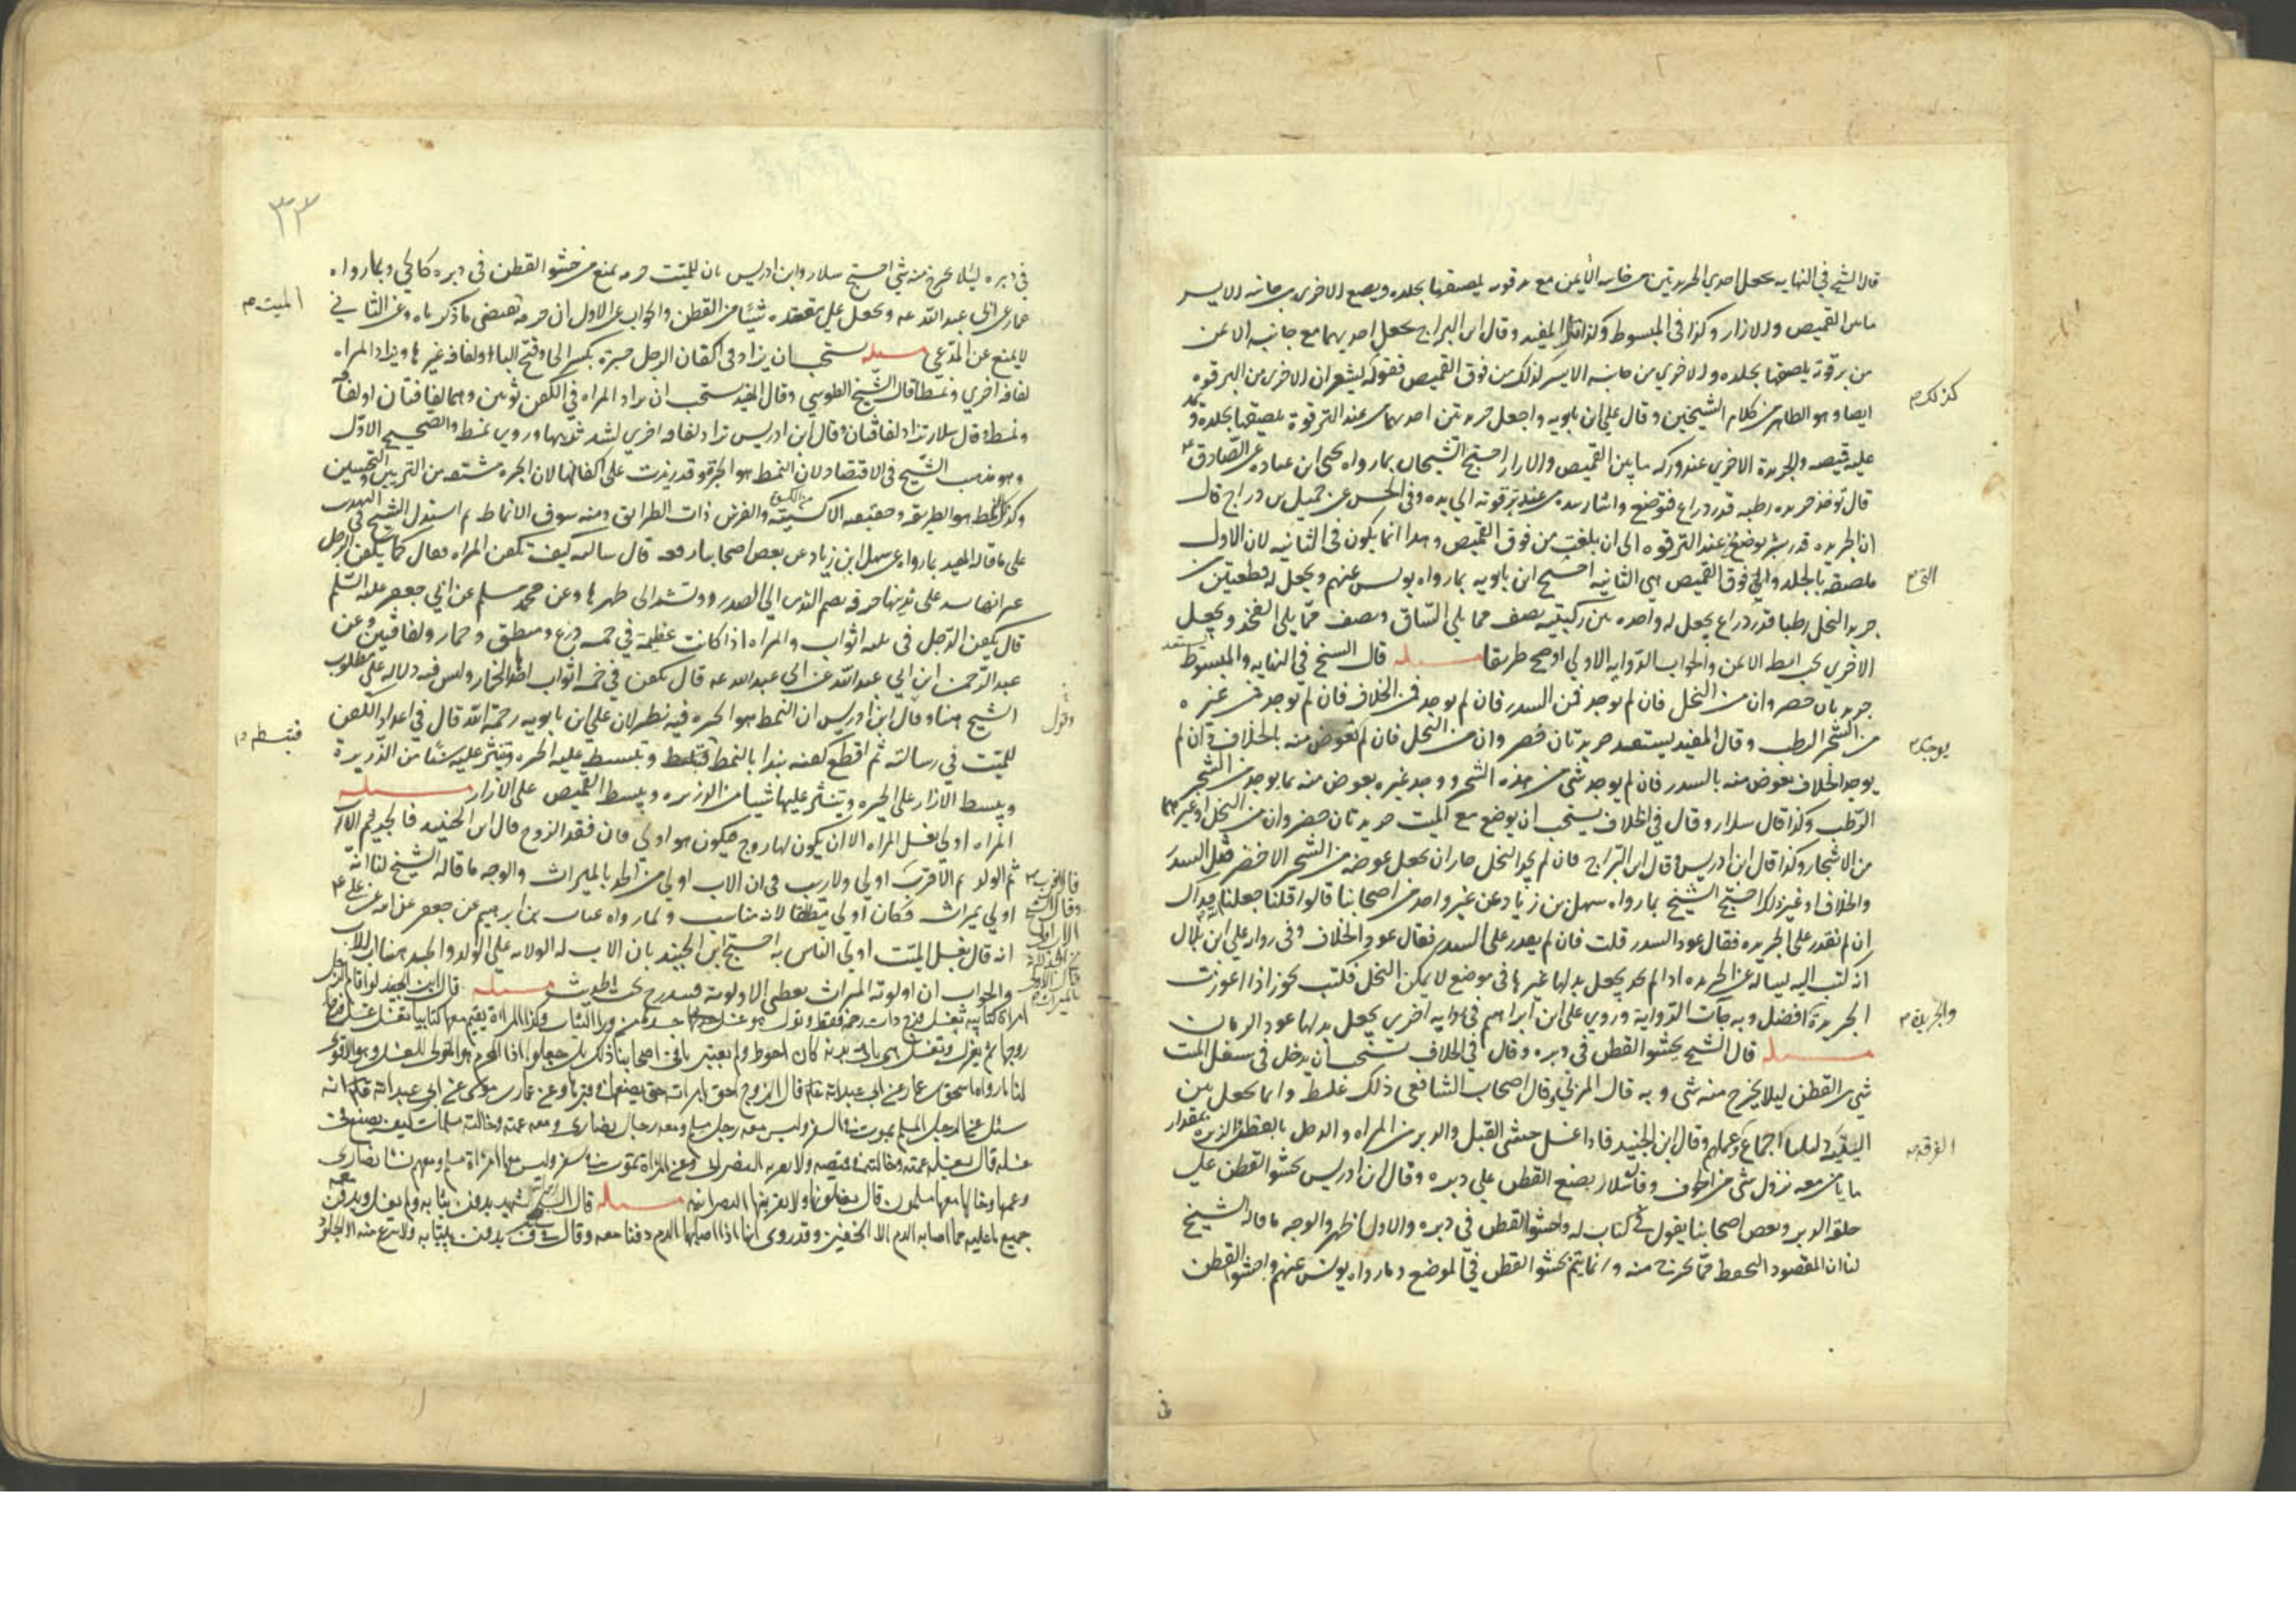 قال الشيخ في النهاية يجعل احدي الجريدتين من جانبه الأيمن مع ترقوته يلصقها بجلده ويضع الاخرى من جانبه الايسر
ما بين القميص والازار وكذا في المبسوط وكذا قال المفيد وقال ابن البراج يجعل احديهما مع جانبه الايمن
من ترقوته يلصقها بجلده والاخري من جانبه الايسر كذلك من فوق القميص فقوله يشعر ان الاخرى من الترقوه
كذلك
ايضا وهو الظاهر من كلام الشيخين وقال علي ابن بابويه واجعل جريدتين احديهما عند الترقوة تلصقها بجلده
عليه قميصه والجريدة الاخري عند وركه ما بين القميص والازار احتج الشيخان بما رواه يحيى ابن عباده عن الصادق
قال تؤخذ جريده رطبه قدر ذراع فتوضع واشار بيده من عند ترقوته الي يده وفي الحسن عن جميل بن دراج قال
ان الجريده قدر شبر توضع عند الترقوه الى ان بلغت من فوق القميص وهذا انما يكون في الثانيه لان الاول
ملصقه بالجلد والتي فوق القميص هي الثانيه احتج ابن بابويه بما رواه يونس عنهم ويجعل له قطعتين من
التي
جريد النخل رطبا قدر ذراع يجعل له واحده بين ركبتيه نصف مما يلي الساق ونصف مما يلي الفخذ ويجعل
الاخري تحت ابطه الايمن والجواب الروايه الاولي اوضح طريقا مسئله قال الشيخ في النهايه والمبسوط يستعد
جريدتان خضروان من النخل فان لم يوجد فمن السدر فان لم يوجد فمن الخلاف فان لم يوجد فمن غيره
من الشجر الرطب وقال المفيد يستعد جريدتان خضروان من النخل فان لم يعوض منه بالخلاف فان لم
يوجد
يوجد الخلاف يعوض منه بالسدر فان لم يوجد شئ من هذه الشجر ووجد غيره يعوض منه بما يوجد من الشجر
الرطب وكذا قال سلار وقال في الخلاف يستحب ان يوضع مع الميت جريدتان خضروان من النخل او غيرها
من الاشجار وكذا قال ابن ادريس وقال ابن البراج فان لم يجد النخل جاز ان يجعل عوضه من الشجر الاخضر مثل السدر
والخلاف او غير ذلك احتج الشيخ بما رواه سهل بن زياد عن غير واحد من اصحابنا قالوا قلنا جعلنا فداك
ان لم نقدر على الجريده فقال عود السدر قلت فان لم يقدر على السدر فقال عود الخلاف وفي روايه علي ابن بلال
انه كتب اليه يساله عن الجريده اذا لم يجد يجعل بدلها غيرها في موضع لا يمكن النخل فكتب يجوز اذا اعوزت
الجريدة افضل وبه جاءت الرواية وروي علي ابن ابراهيم في روايه اخري يجعل بدلها عود الرمان
والجريدة
مسئله قال الشيخ يحشو القطن في دبره وقال في الخلاف يستحب ان يدخل في سفل الميت
شئ من القطن ليلا يخرج منه شئ وبه قال المزني وقال اصحاب الشافعي ذلك غلط وانما يجعل بين
اليتيه دليلنا اجماع وعملهم وقال ابن الجنيد فاذا غسل حشى القبل والدبر من المراه والرجل بالقطن بمقدار
الفرقه
ما يأمن معه نزول شئ من الجوف وقال سلار يضع القطن علي دبره وقال ابن ادريس يحشو القطن علي
حلقه الدبر وبعض اصحابنا يقول في كتاب له واحشو القطن في دبره والاول اظهر والوجه ما قاله الشيخ
لنا ان المقصود التحفظ مما يخرج منه وانما يتم بحشو القطن في الموضع وما رواه يونس عنهم واحشو القطن
في
٣٣
في دبره لئلا يخرج منه شئ احتج سلار وابن ادريس بان للميت حرمه تمنع من حشو القطن في دبره كالحي وبما رواه
عمار عن ابي عبد الله عه ويجعل علي مقعدته شيئا من القطن والجواب عن الاول ان حرمه تقتضي ما ذكرناه وعن الثاني
الميت
لا يمنع عن المدعي مسئله يستحب ان يزاد في اكفان الرجل حبرة بكسر الحا وفتح الباء او لفافه غيرها ويزاد المراه
لفافه اخري ونمطا قال الشيخ الطوسي وقال المفيد يستحب ان يزاد المراه في الكفن ثوبين وهما لفافتان او لفافه
ونمط وقال سلار تزاد لفافتان وقال ابن ادريس تزاد لفافه اخري لشد ثدييها وروي نمط والصحيح الاول
وهو مذهب الشيخ في الاقتصاد لان النمط هو الحبرة وقد زيدت على اكفانها لان الحبره مشتقه من التزيين والتحسين
وكذلك النمط هو الطريقه وحقيقته الاكسيه والفرش ذات الطرائق ومنه سوق الانماط ثم استدل الشيخ في التهذيب
على ما قاله المفيد بما رواه عن سهل ابن زياد عن بعض اصحابنا رفعه قال سالته كيف تكفن المراه فقال كما يكفن الرجل
غير انها تشد على ثدييها خرقه تضم الثدي الي الصدر وتشد الى ظهرها وعن محمد مسلم عن ابي جعفر عليه السلم
قال يكفن الرجل في ثلثه اثواب والمراه اذا كانت عظيمة في خمسه درع ومنطق وخمار ولفافتين وعن
عبد الرحمن ابن ابي عبد الله عن ابي عبد الله عه قال تكفن في خمسه اثواب احدها الخمار وليس فيه دلاله علي مطلوب
الشيخ هنا وقال ابن ادريس ان النمط هو الحبره فيه نظر لان علي ابن بابويه رحمه الله قال في اعداد الكفن
وقول
للميت في رسالته ثم اقطع كفنه تبدا بالنمط وتبسط عليه الحبره وتنثر عليه شيئا من الذريرة
فتبسطه
ويبسط الازار على الحبره وينثر عليها شيئا من الذريره ويبسط القميص على الازار مسئله
المراه اولي بغسل المراه الا ان يكون لها زوج فيكون هو اولي فان فقد الزوج قال ابن الجنيد فالجد ثم الاب
ثم الولد ثم الاقرب اولي ولا ريب في ان الاب اولي من الجد بالميراث والوجه ما قاله الشيخ لنا انه
فالاقرب
اولي بميراث فكان اولي مطلقا لانه مناسب ولما رواه غياث بن ابرهيم عن جعفر عن ابيه عن علي
انه قال يغسل الميت اولي الناس به احتج ابن الجنيد بان الاب له الولايه علي الولد والجد هنا اب للاب
والجواب ان اولوية الميراث يعطي الاولويه فيندرج تحت الحديث مسئله قال ابن الجنيد
سئل عن الرجل المسلم يموت في السفر وليس معه رجل مسلم ومعه رجال نصارى ومعه عمته وخالته مسلمات كيف يصنع في
غسله قال يغسله عمته وخالته في قميصه ولا يقربه النصارى وعن المراة تموت في سفر وليس معها امراة مسلمه ومعهم نساء نصارى
وعمها وخالها معها مسلمون قال يغسلونها ولا يقربنها النصرانيه مسئله قال الشيخ الشهيد يدفن بثيابه ولم يغسل ويدفن معه
جميع ما عليه مما اصابه الدم الا الخفين وقد روى انها اذا اصابها الدم دفنا معه وقال في الخلاف يدفن بثيابه ولا ينزع منه الا الجلود